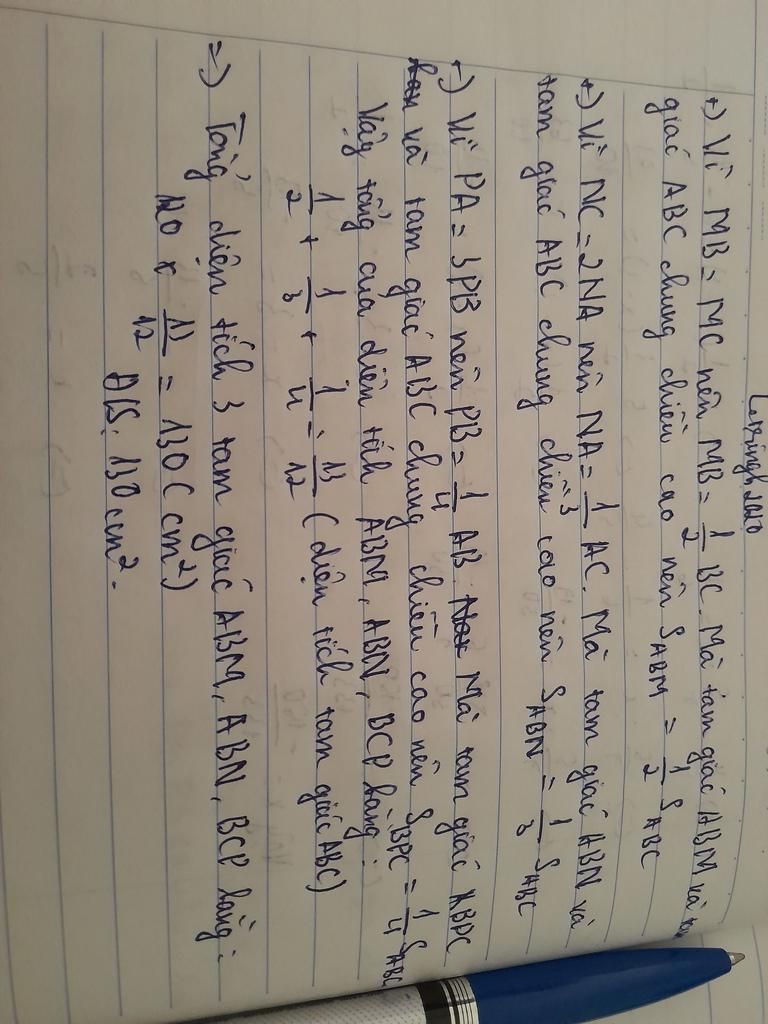 Lazingk2010
+) Vì MB = MC nên MB = 1/2 BC. Mà tam giác ABM và tam
giác ABC chung chiều cao nên S_ABM = 1/2 S_ABC
+) Vì NC = 2NA nên NA = 1/3 AC. Mà tam giác ABN và
tam giác ABC chung chiều cao nên S_ABN = 1/3 S_ABC
+) Vì PA = 3PB nên PB = 1/4 AB. Mà tam giác BPC
và tam giác ABC chung chiều cao nên S_BPC = 1/4 S_ABC
Vậy tổng của diện tích ABM, ABN, BCP bằng:
1/2 + 1/3 + 1/4 = 13/12 (diện tích tam giác ABC)
=) Tổng diện tích 3 tam giác ABM, ABN, BCP bằng:
120 x 13/12 = 130 (cm²)
Đ/S: 130 cm².